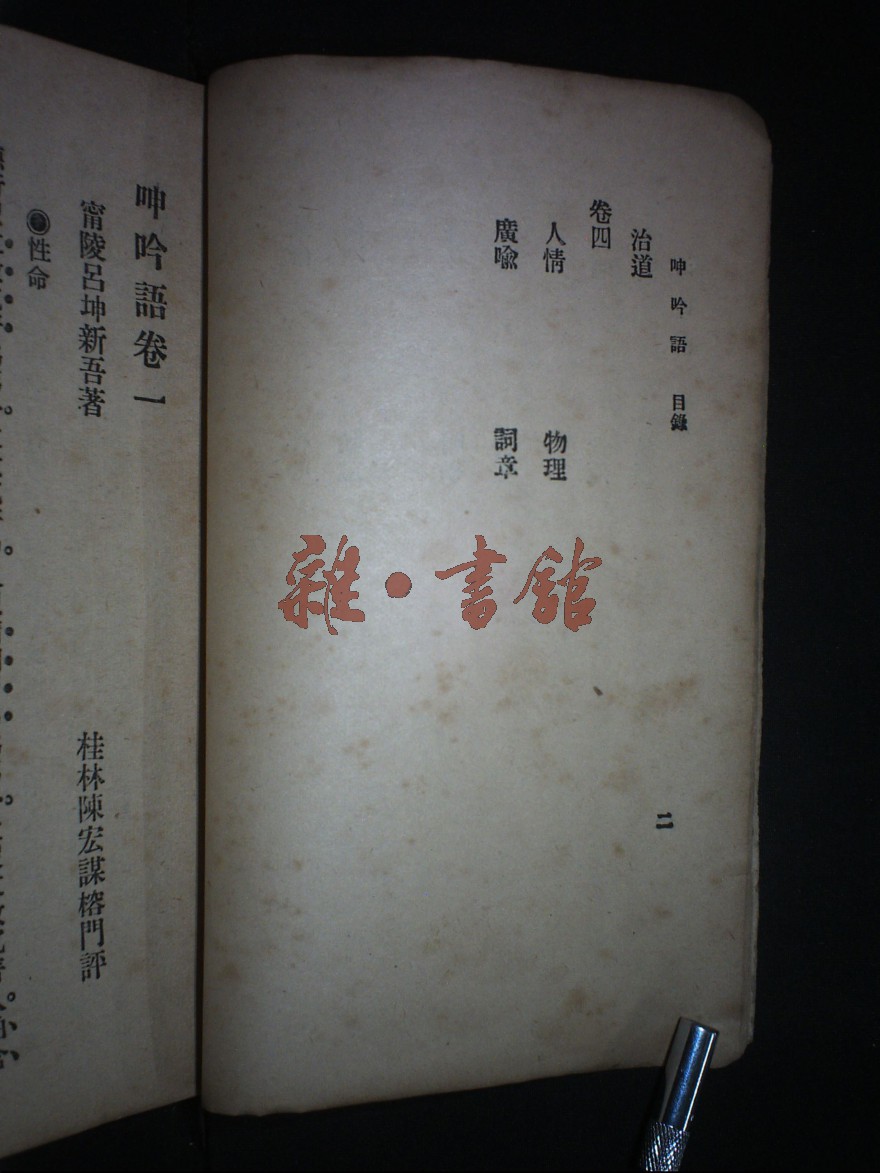 呻吟語 目錄
治道
卷四
人情 物理
廣喩 詞章
二
雜·書館
呻吟語卷一
甯陵呂坤新吾著 桂林陳宏謀榕門評
◉性命